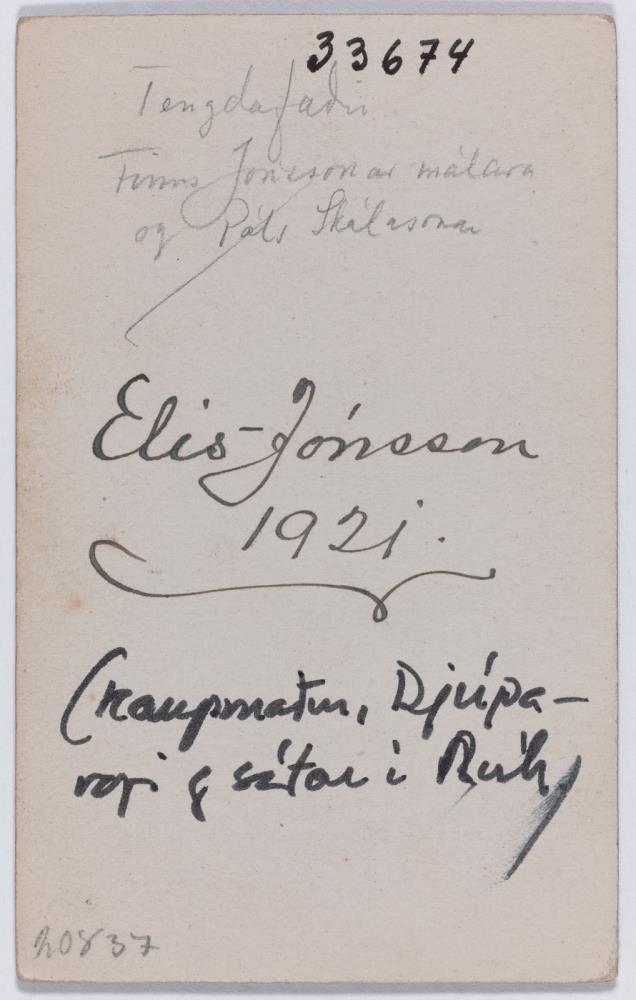 33674
Tengdafaðir
Finns Jónssonar málara
og Páls Skúlasonar
Elis Jónsson
1921.
(kaupmaður, Djúpa-
vogi & síðar í Rvík)
20837